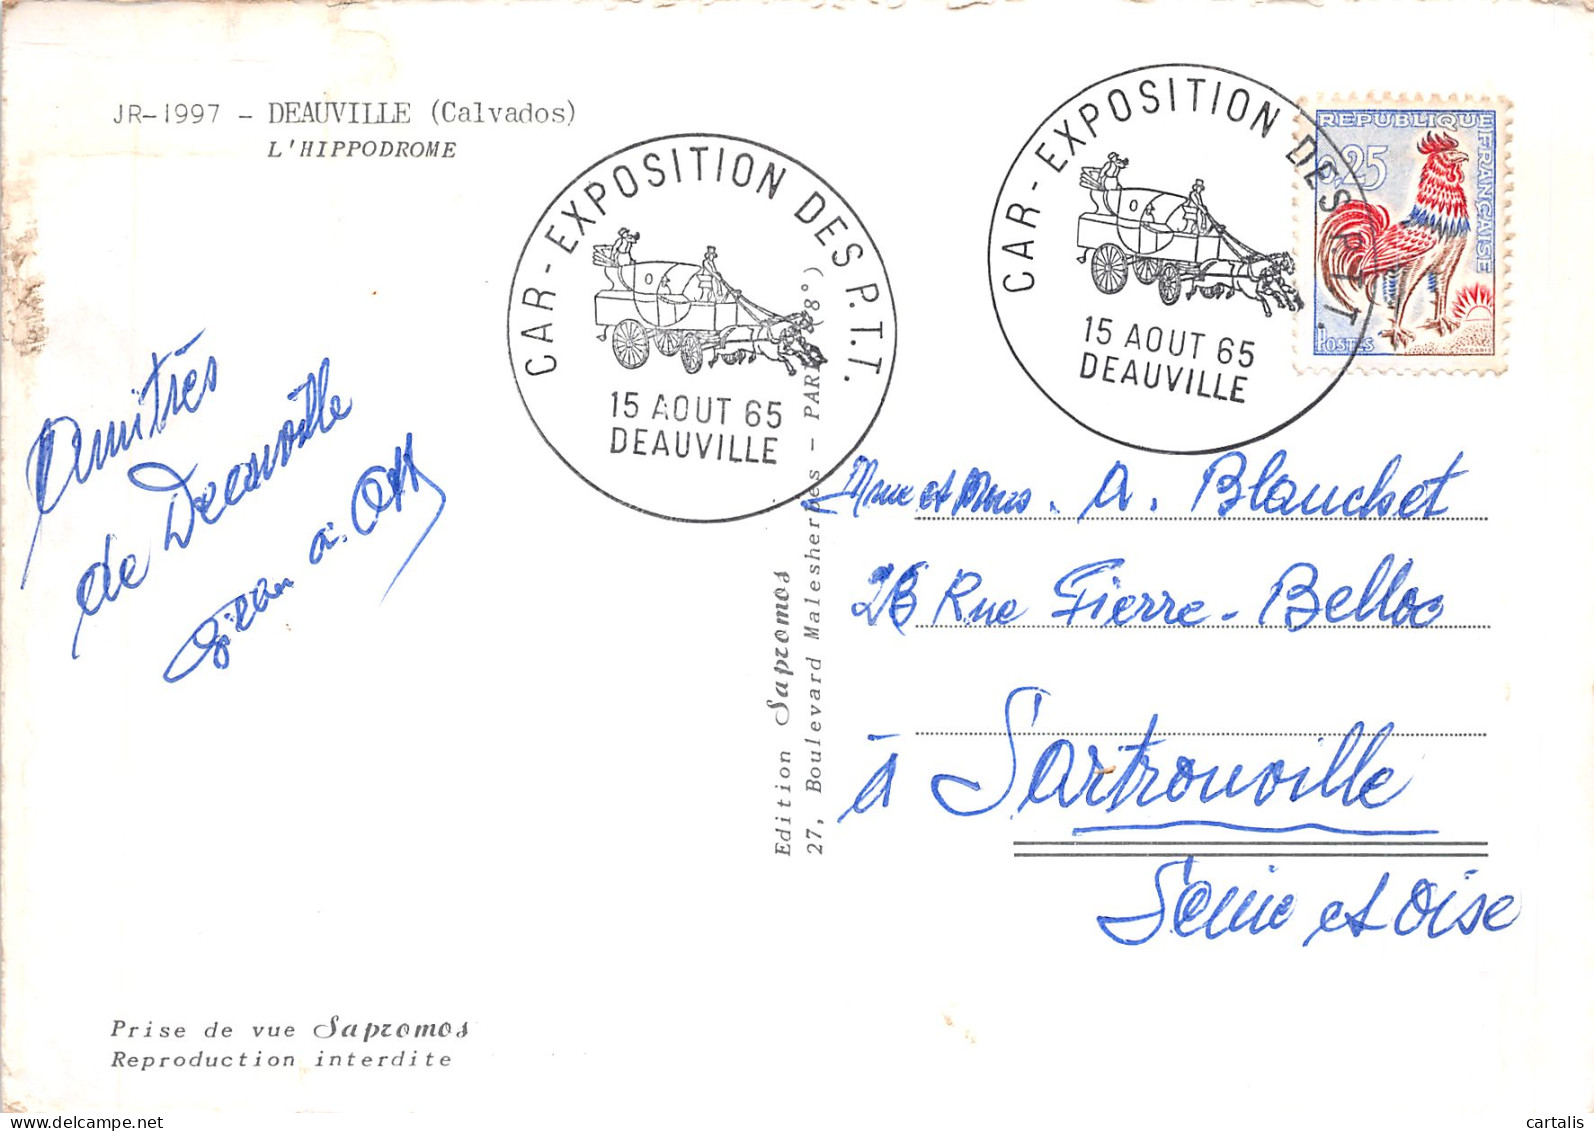 JR-1997 - DEAUVILLE (Calvados)
L'HIPPODROME
CAR-EXPOSITION DES P.T.T.
15 AOUT 65
DEAUVILLE
CAR-EXPOSITION DES P.T.T.
15 AOUT 65
DEAUVILLE
REPUBLIQUE FRANÇAISE
0,25
POSTES
DECARIS
Amitiés
de Deauville
Edition Sapromos
27, Boulevard Malesherbes - PARIS (8°)
Mme et Mrs. A. Blanchet
Rue Pierre-Belloc
à Sartrouville
Seine et Oise
Prise de vue Sapromos
Reproduction interdite
cartalis